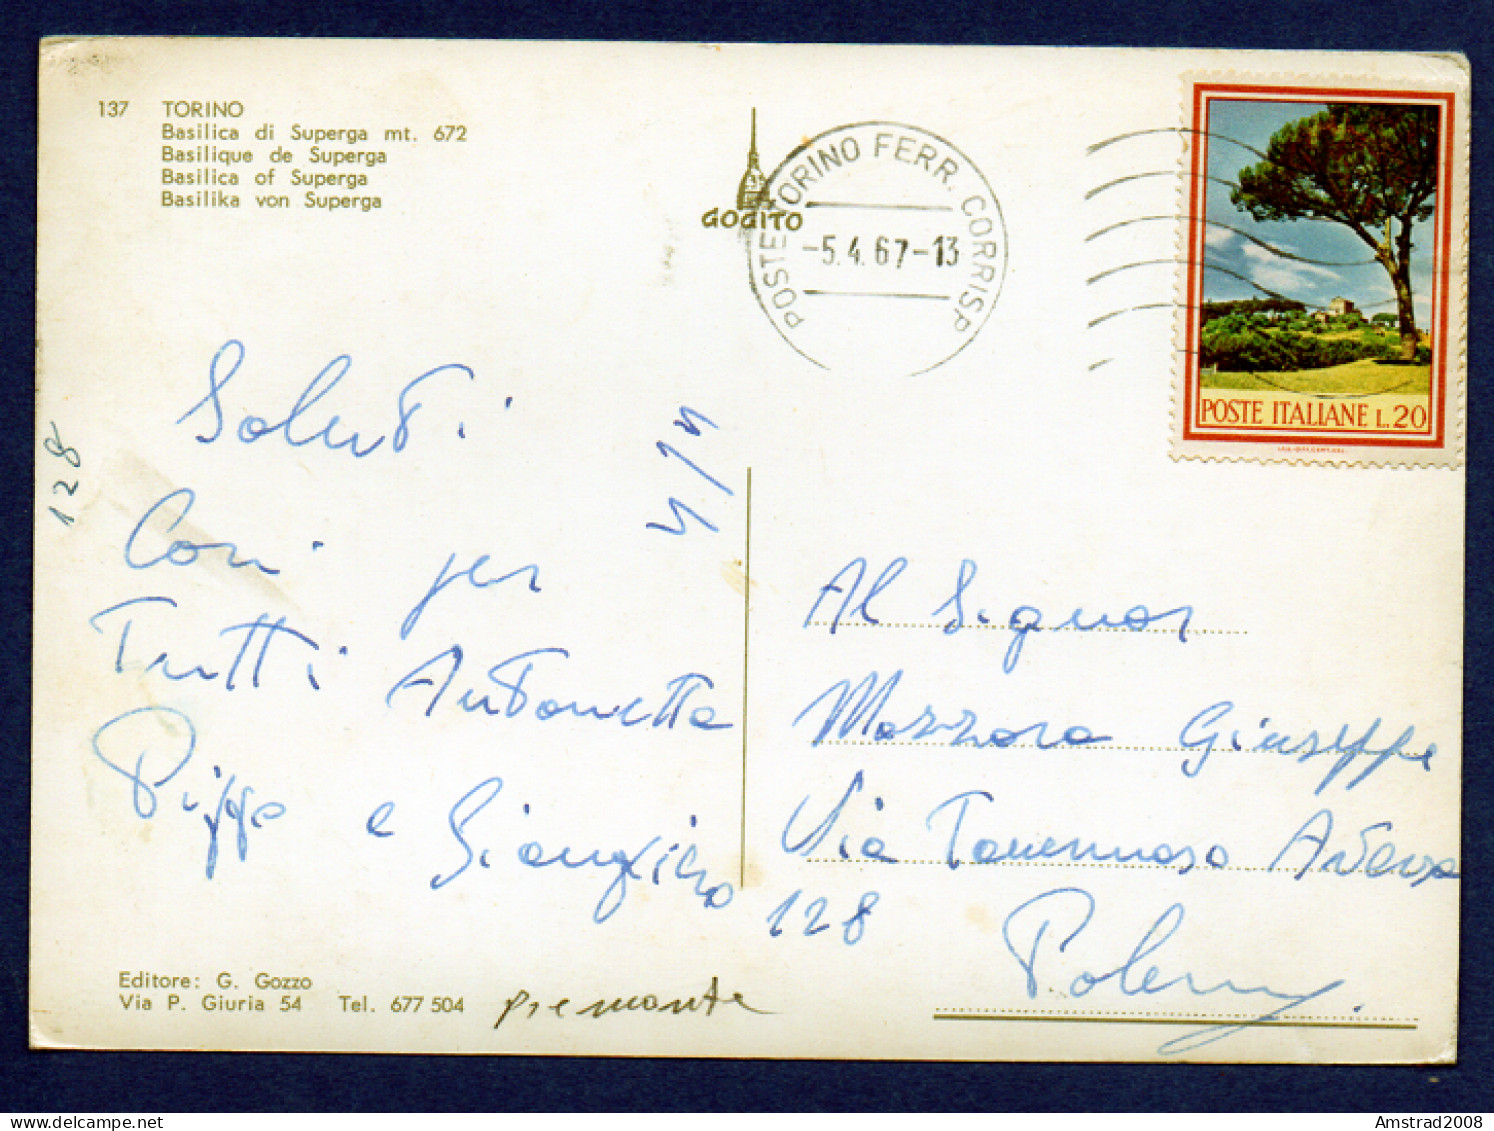 137 TORINO
Basilica di Superga mt. 672
Basilique de Superga
Basilica of Superga
Basilika von Superga
GOGITO
POSTE TORINO FERR. CORRISP
-5.4.67-13
POSTE ITALIANE L.20
128
Saluti
Cari per
Tutti Antonetta
Pippo e
4/4
Al Signor
Mazzara Giuseppe
Via
128
Palermo
Editore: G. Gozzo
Via P. Giuria 54 Tel. 677 504
piemonte
delcampe.net
Amstrad2008